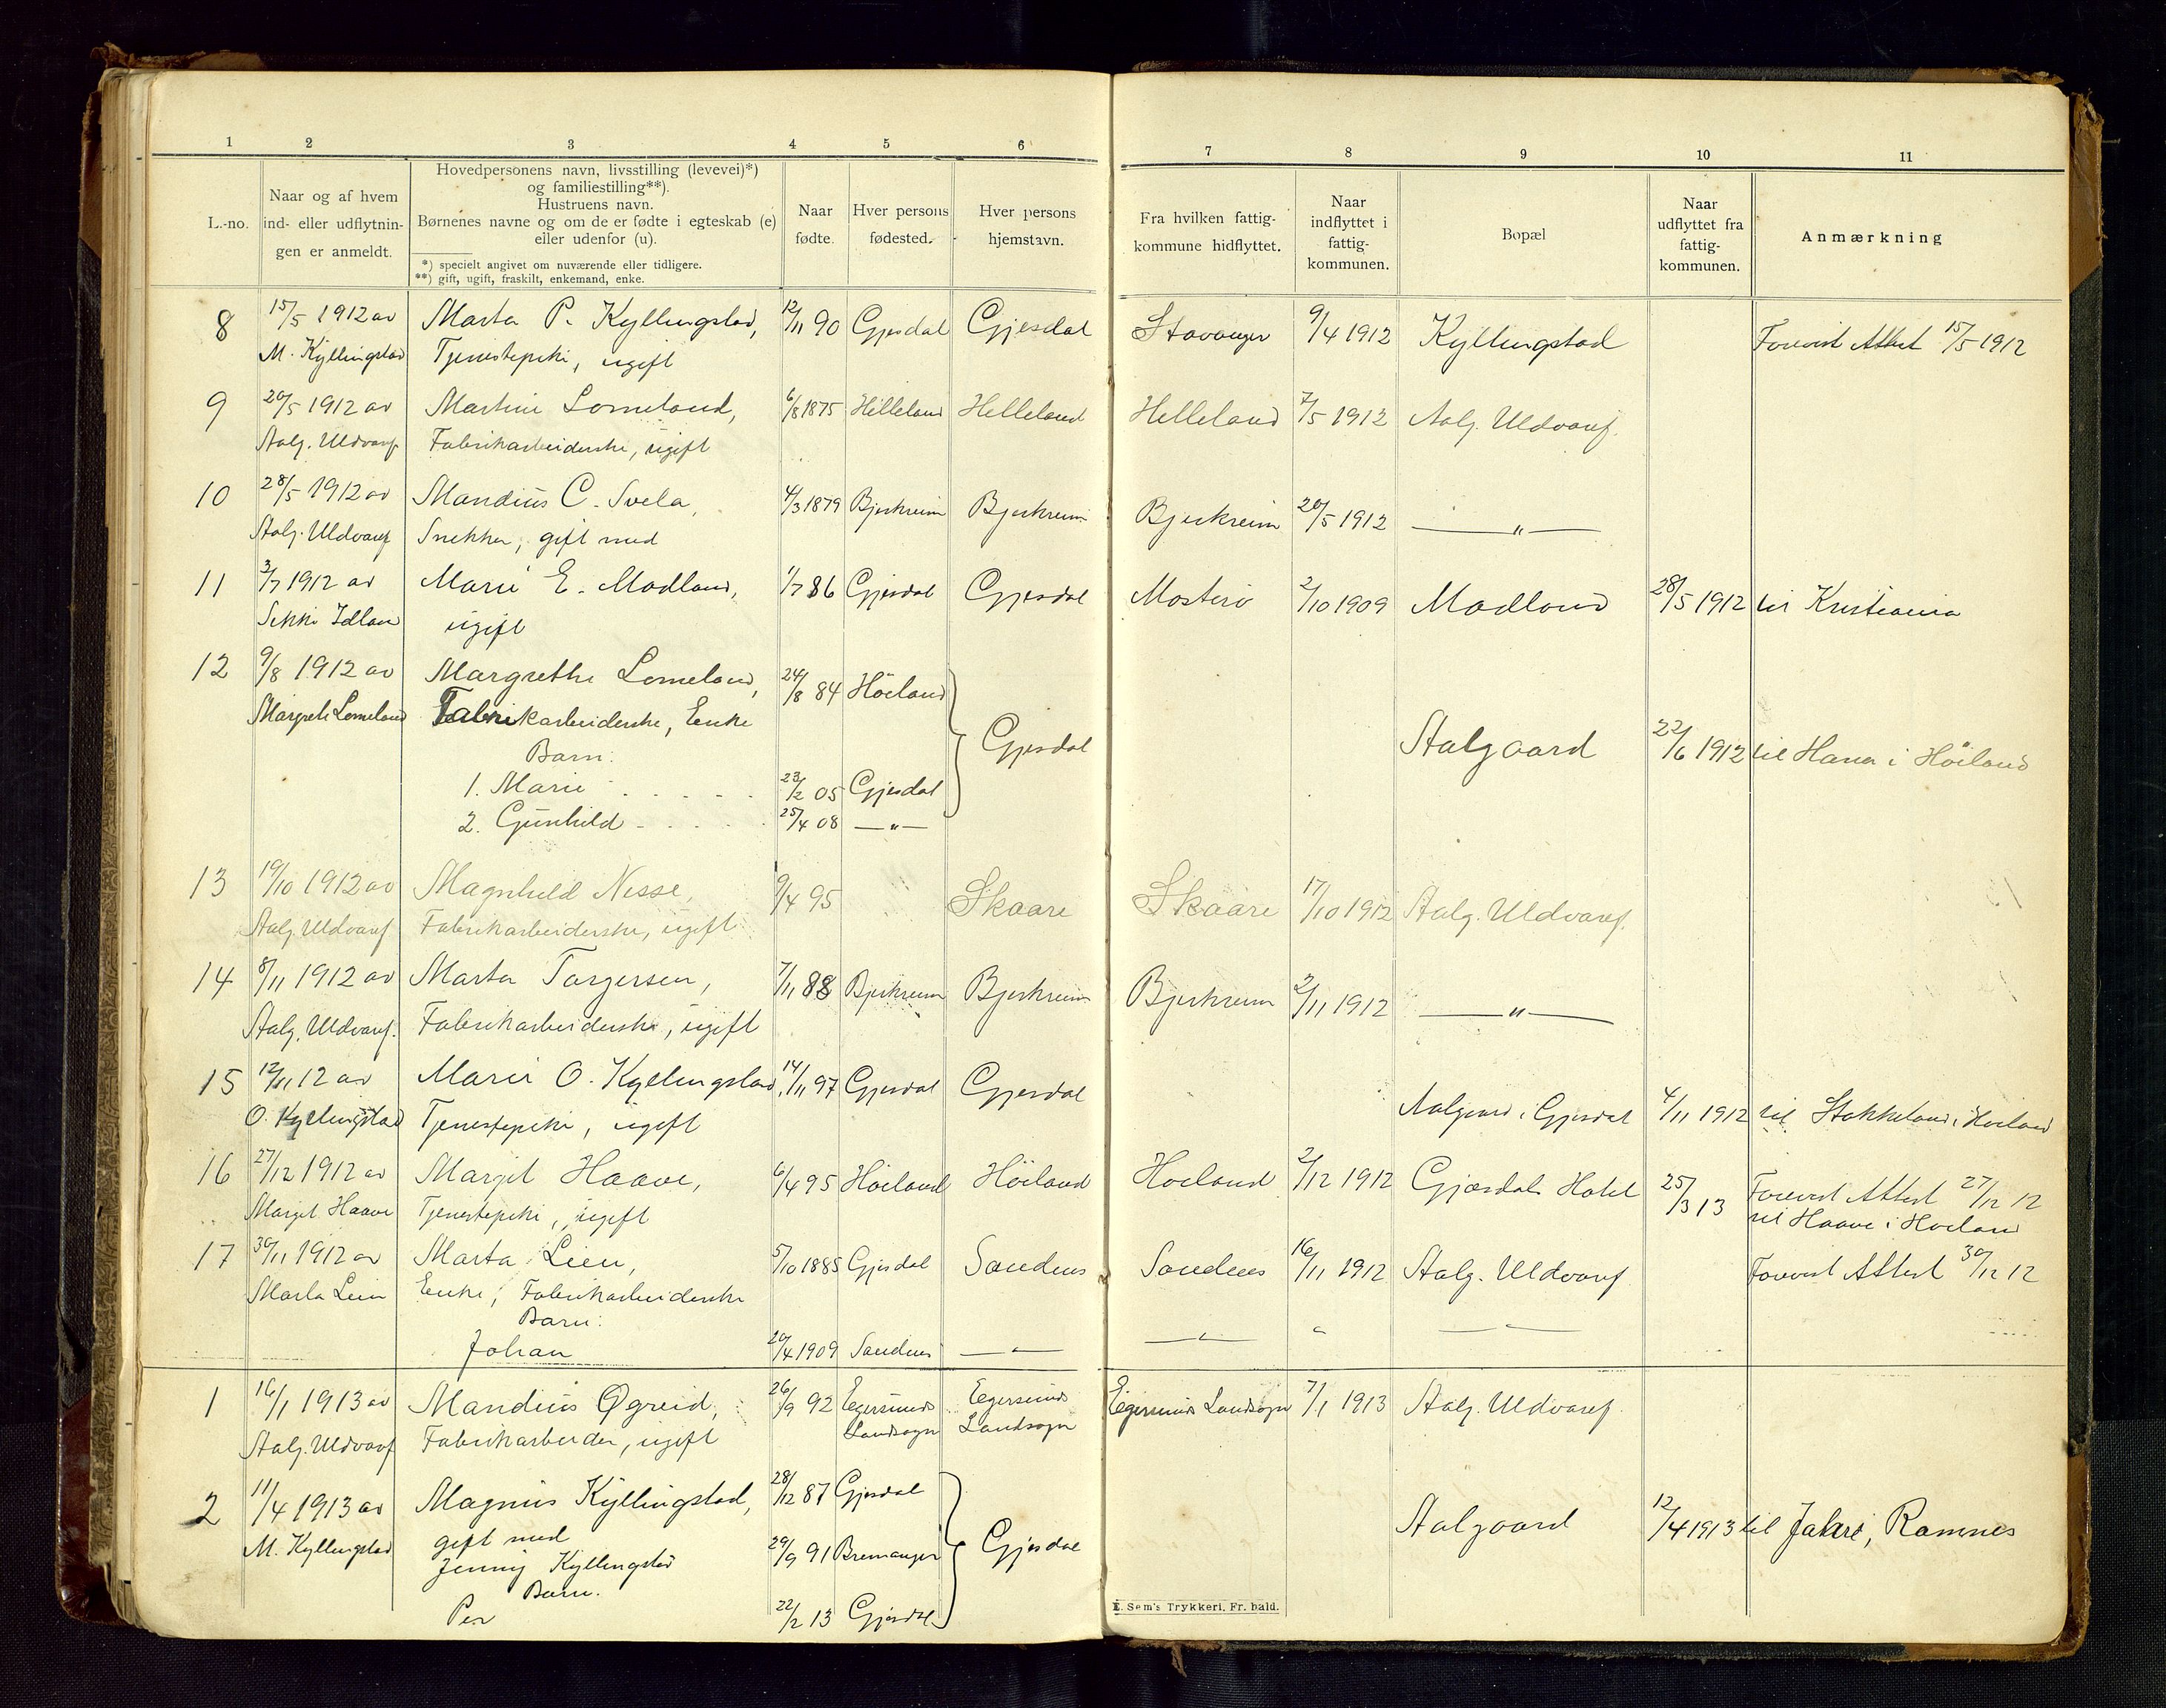 1 2 3 4 5 6 7 8 9 10 11
L.-no.
Naar og af hvem
ind- eller udflytnin-
gen er anmeldt.
Hovedpersonens navn, livsstilling (levevei)*)
og familiestilling**).
Hustruens navn.
Børnenes navne og om de er fødte i egteskab (e)
eller udenfor (u).
*) specielt angivet om nuværende eller tidligere.
**) gift, ugift, fraskilt, enkemand, enke.
Naar
fødte.
Hver persons
fødested.
Hver persons
hjemstavn.
Fra hvilken fattig-
kommune hidflyttet.
Naar
indflyttet i
fattig-
kommunen.
Bopæl
Naar
udflyttet fra
fattig-
kommunen.
Anmærkning
8 15/5 1912 av Marta P. Kyllingstad, 12/11 90 Gjesdal Gjesdal Stavanger 9/4 1912 Kyllingstad Forevist Attest 15/5 1912
M. Kyllingstad Tjenestepike, ugift
9 20/5 1912 av Martine Lomeland, 6/8 1875 Helleland Helleland Helleland 7/5 1912 Aalg. Uldvaref.
Aalg. Uldvaref Fabrikarbeiderske, ugift
10 28/5 1912 av Mandius C. Svela, 4/3 1879 Bjerkreim Bjerkreim Bjerkreim 20/5 1912 — " —
Aalg. Uldvaref Snekker, gift med
11 3/7 1912 av Marie E. Modland, 1/7 86 Gjesdal Gjesdal Mosterø 2/10 1909 Modland 28/5 1912 til Kristiania
Sekki Idland ugift
12 9/8 1912 av Margrethe Lomeland, 24/8 84 Höiland
Margrete Lomeland Fabrikarbeiderske, Enke Gjesdal Aalgaard 22/6 1912 til Hana i Höiland
Barn:
1. Marie 23/2 05 Gjesdal
2. Gunhild 25/4 08 — " —
13 19/10 1912 av Magnhild Nesse, 9/4 95 Skaare Skaare 17/10 1912 Aalg. Uldvaref.
Aalg. Uldvaref Fabrikarbeiderske, ugift
14 8/11 1912 av Marta Torgersen, 7/11 88 Bjerkreim Bjerkreim Bjerkreim 2/11 1912 — " —
Aalg. Uldvaref. Fabrikarbeiderske, ugift
15 12/11 12 av Marie O. Kyllingstad, 14/11 97 Gjesdal Gjesdal Aalgaard i Gjesdal 4/11 1912 til Stokkeland i Höiland
O. Kyllingstad Tjenestepike, ugift
16 27/12 1912 av Margit Haave, 6/4 95 Höiland Höiland Höiland 2/12 1912 Gjesdals Hotel 25/3 13 Forevist Attest 27/12 12
Margit Haave Tjenestepike, ugift til Haave i Höiland
17 30/11 1912 av Marta Lien, 5/10 1885 Gjesdal Sandnes Sandnes 16/11 1912 Aalg. Uldvaref Forevist Attest 30/12 12
Marta Lien Enke, Fabrikarbeiderske
Barn:
Johan 20/4 1909 Sandnes — " — — " — " — " —
1 16/1 1913 av Mandius Øgreid, 26/9 92 Egersunds Egersunds Egersunds Landsogn 7/1 1913 Aalg. Uldvaref
Aalg. Uldvaref Fabrikarbeider, ugift Landsogn Landsogn
2 11/4 1913 av Magnus Kyllingstad, 28/12 87 Gjesdal
M. Kyllingstad gift med Gjesdal Aalgaard 12/4 1913 til Jahre, Ramnes
Jenny Kyllingstad 29/9 91 Bremanger
Barn.
Per 22/2 13 Gjesdal
E. Sem's Trykkeri, Fr. hald.